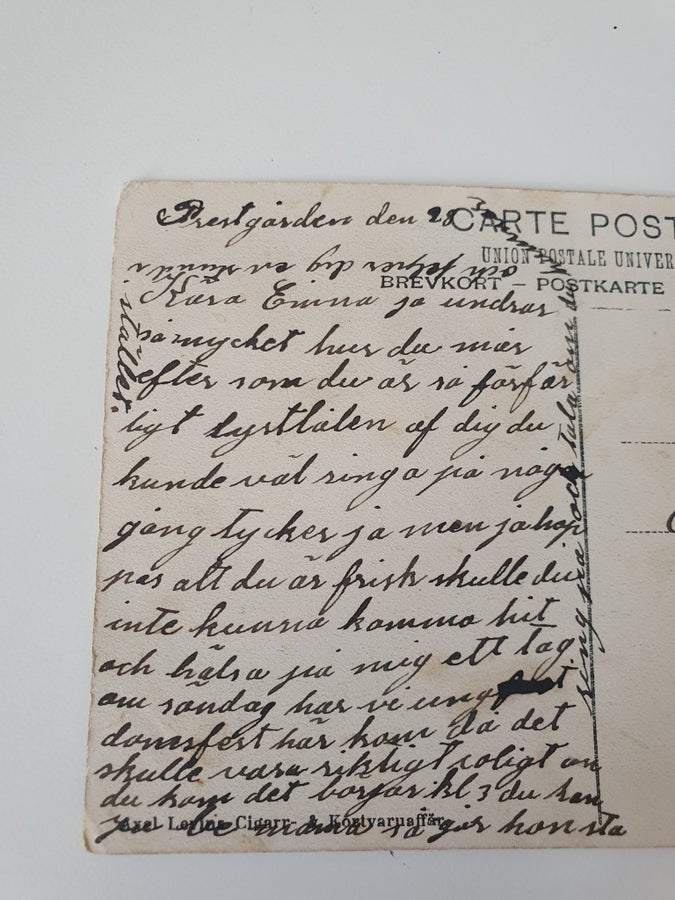 Prestgården den 28
CARTE POST
UNION POSTALE UNIVER
BREVKORT – POSTKARTE
Kära Emma ja undrar
så mycket hur du mår
efter som du är så förfär
ligt tystlåten af dig du
kunde väl ringa på någo
gång tycker ja men ja hop
pas att du är frisk skulle du
inte kunna komma hit
och hälsa på mig ett tag
om söndag har vi ung
domsfest här kom då det
skulle vara riktigt roligt om
du kom det börjar kl 3 du kan
be mama så gör hon sta
Axel Levins Cigarr- & Kortvaruaffär
ring på och tala om de
och helger dig en stund
i stället.